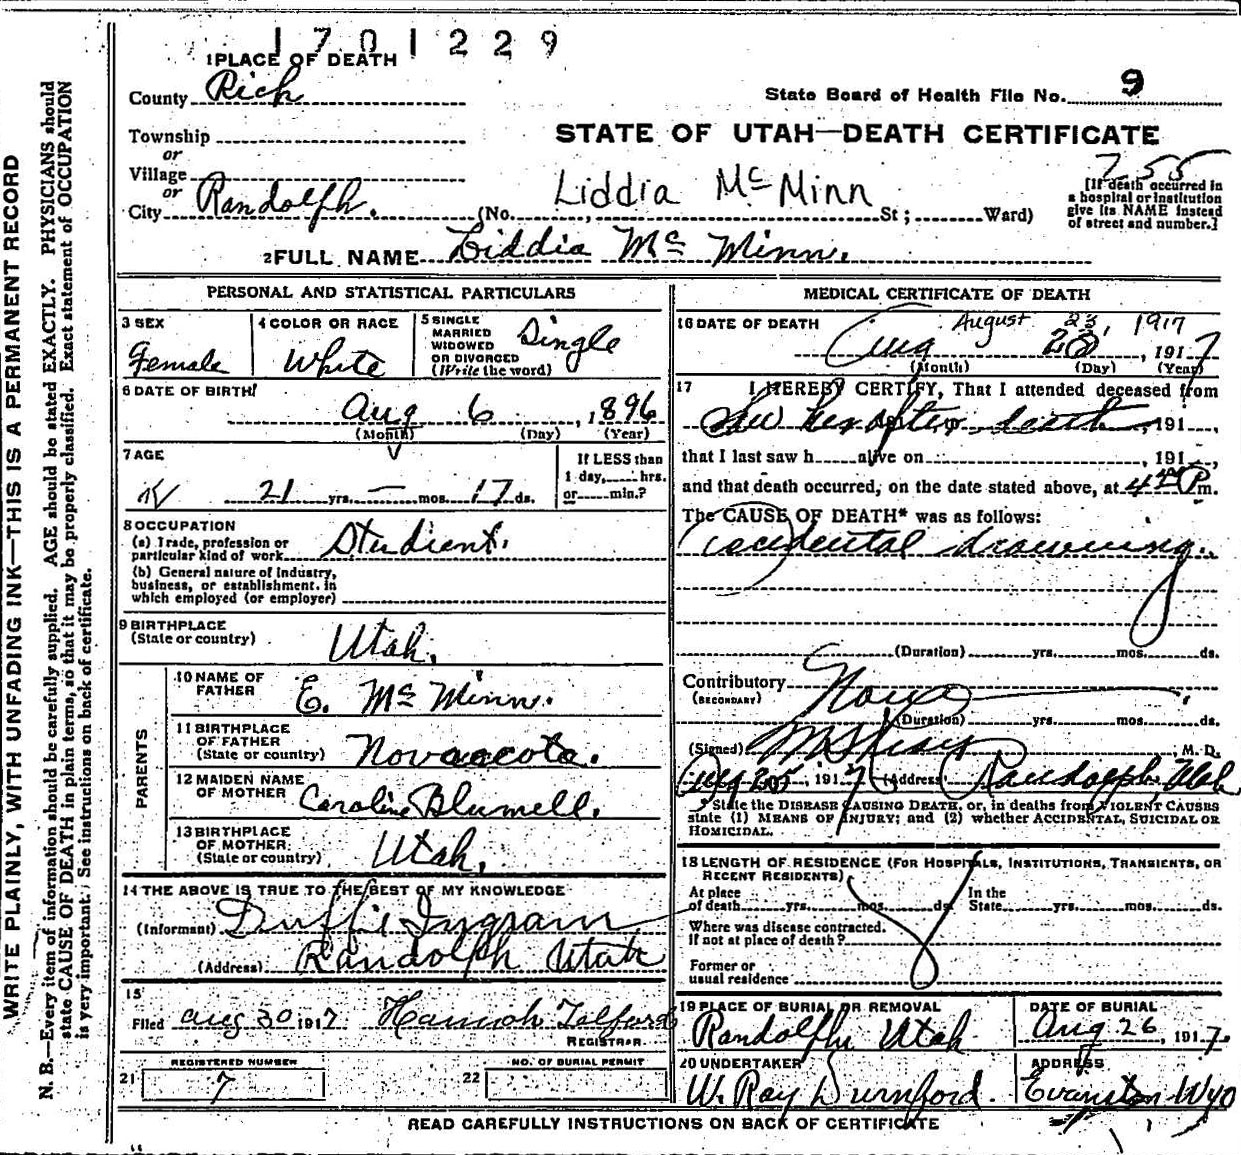 1701229
1 PLACE OF DEATH
County Rich
State Board of Health File No. 9
Township
STATE OF UTAH—DEATH CERTIFICATE
or
Village
255
or
City Randolph.
(No. , Liddia Mc Minn St; Ward)
[If death occurred in
a hospital or institution
give its NAME instead
of street and number.]
2 FULL NAME Liddia Mc Minn.
PERSONAL AND STATISTICAL PARTICULARS
3 SEX
Female
4 COLOR OR RACE
White
5 SINGLE
MARRIED
WIDOWED
OR DIVORCED
(Write the word)
Single
6 DATE OF BIRTH
Aug 6, 1896
(Month) (Day) (Year)
7 AGE
21 yrs. — mos. 17 ds.
If LESS than
1 day, hrs.
or min.?
8 OCCUPATION
(a) Trade, profession or
particular kind of work Studient.
(b) General nature of industry,
business, or establishment, in
which employed (or employer)
9 BIRTHPLACE
(State or country) Utah.
PARENTS
10 NAME OF
FATHER E. Mc Minn.
11 BIRTHPLACE
OF FATHER
(State or country) Novascota.
12 MAIDEN NAME
OF MOTHER Caroline Blumell.
13 BIRTHPLACE
OF MOTHER
(State or country) Utah.
14 THE ABOVE IS TRUE TO THE BEST OF MY KNOWLEDGE
(Informant) Duffie Ingram
(Address) Randolph Utah
15
Filed Aug 30 1917 Hannoh Telford
REGISTRAR
REGISTERED NUMBER
21 7
NO. OF BURIAL PERMIT
22
MEDICAL CERTIFICATE OF DEATH
16 DATE OF DEATH August 23, 1917
Aug 23, 1917
(Month) (Day) (Year)
17 I HEREBY CERTIFY, That I attended deceased from
Saw her after death, 191 ,
that I last saw h alive on , 191 ,
and that death occurred, on the date stated above, at 4 P m.
The CAUSE OF DEATH* was as follows:
Accidental drowning.
(Duration) yrs. mos. ds.
Contributory None
(SECONDARY)
(Duration) yrs. mos. ds.
(Signed) , M. D.
Aug 25, 1917 (Address) Randolph, Utah
* State the DISEASE CAUSING DEATH, or, in deaths from VIOLENT CAUSES
state (1) MEANS OF INJURY; and (2) whether ACCIDENTAL, SUICIDAL OR
HOMICIDAL.
18 LENGTH OF RESIDENCE (FOR HOSPITALS, INSTITUTIONS, TRANSIENTS, OR
RECENT RESIDENTS)
At place
of death yrs. mos. ds.
In the
State yrs. mos. ds.
Where was disease contracted.
If not at place of death?
Former or
usual residence
19 PLACE OF BURIAL OR REMOVAL
Randolph Utah
DATE OF BURIAL
Aug 26, 1917.
20 UNDERTAKER
W. Ray Durnford.
ADDRESS
Evanston Wyo
READ CAREFULLY INSTRUCTIONS ON BACK OF CERTIFICATE
WRITE PLAINLY, WITH UNFADING INK—THIS IS A PERMANENT RECORD
N. B.—Every item of information should be carefully supplied. AGE should be stated EXACTLY. PHYSICIANS should
state CAUSE OF DEATH in plain terms, so that it may be properly classified. Exact statement of OCCUPATION
is very important. See instructions on back of certificate.